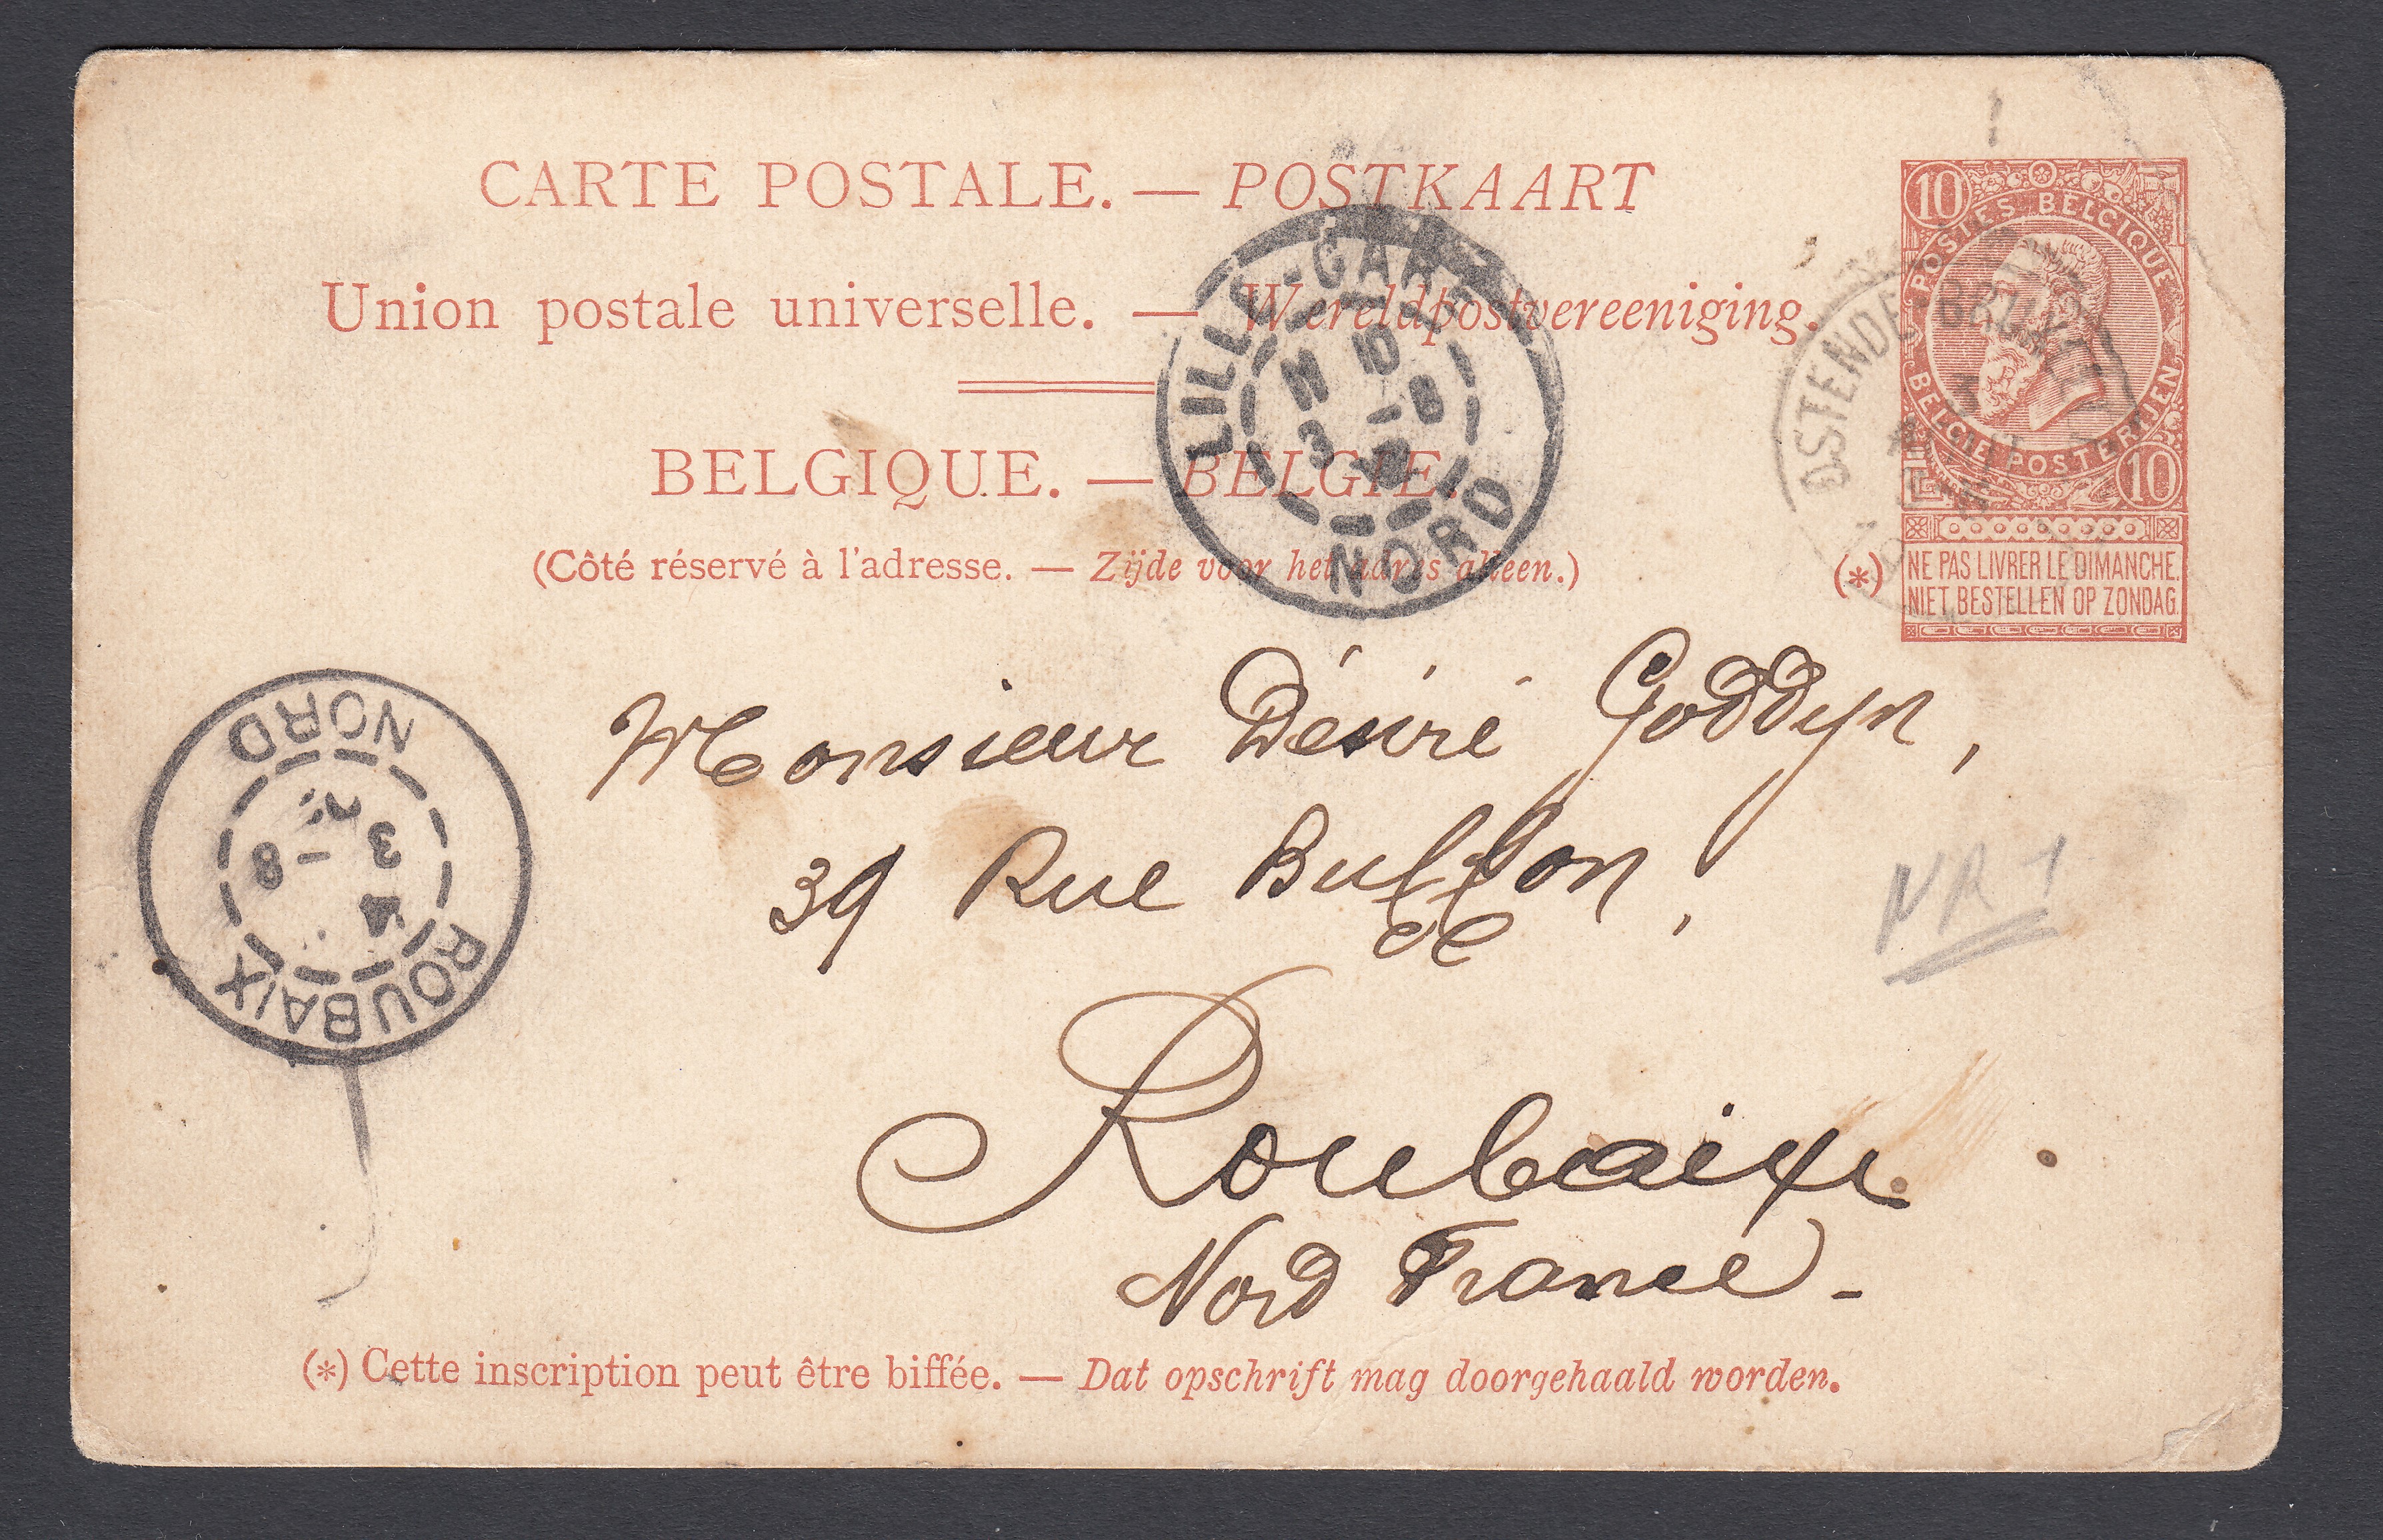 CARTE POSTALE. — POSTKAART
Union postale universelle. — Wereldpostvereeniging.
BELGIQUE. — BELGIE.
(Côté réservé à l'adresse. — Zijde voor het adres alleen.)
10
POSTES BELGIQUE
BELGIE POSTERIJEN
10
(*) NE PAS LIVRER LE DIMANCHE.
NIET BESTELLEN OP ZONDAG.
OSTENDE
LILLE-GARE
10
3 -8
NORD
NORD
3 -8
ROUBAIX
Monsieur Désiré Goddyn,
39 Rue Buffon,
NR 1
Roubaix
Nord France -
(*) Cette inscription peut être biffée. — Dat opschrift mag doorgehaald worden.